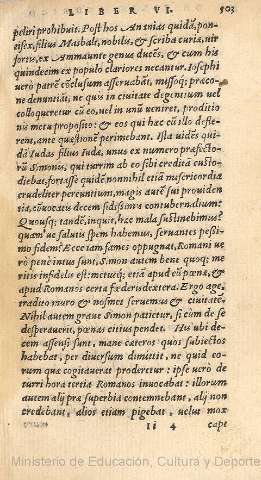 LIBER VI. 503
peliri prohibuit. Post hos Ananias quidã, pon-
tifex, filius Masbale, nobilis, & scriba curiæ, vir
fortis, ex Ammaunte genus ducẽs, & cum his
quindecim ex populo clariores necantur. Iosephi
uero patrẽ cõclusum asseruabãt, missoq; præco-
ne denuntiãt, ne quis in ciuitate degentium uel
colloqueretur cũ eo, uel in unũ ueniret, proditio
nis metu proposito: & eos qui hac cũ illo defle-
rent, ante quæstionẽ perimebant. Ista uidẽs quidã
dã Iudas filius Iudæ, unus ex numero præfecto-
rũ Simonis, qui turrim ab eo sibi creditã custo-
diebat, fortasse quidẽ nonnihil etiã misericordia
crudeliter pereuntium, magis autẽ sui prouiden
tia, cõuocatis decem fidissimis contubernalium:
Quousq; tandẽ, inquit, hæc mala sustinebimus?
quam ue salutis spem habemus, seruantes pessi-
mo fidem? Ecce iam fames oppugnat, Romani ue
rò penè intus sunt, Simon autem bene quoq; me
ritis infidelis est: metusq; etiã apud eũ pœnæ, &
apud Romanos certa fœderis dextera. Ergo age,
tradito muro & nosmet seruemus & ciuitatẽ.
Nihil autem graue Simon patietur, si cùm de se
desperauerit, pœnas citius pendet. His ubi de-
cem assensi sunt, mane cæteros quos subiectos
habebat, per diuersum dimittit, ne quid eo-
rum quæ cogitauerat proderetur: ipse uero de
turri hora tertia Romanos inuocabat: illorum
autem alij præ superbia contemnebant, alij non
credebant, alios etiam pigebat, uelut mox
Ii 4 capt
Ministerio de Educación, Cultura y Deporte